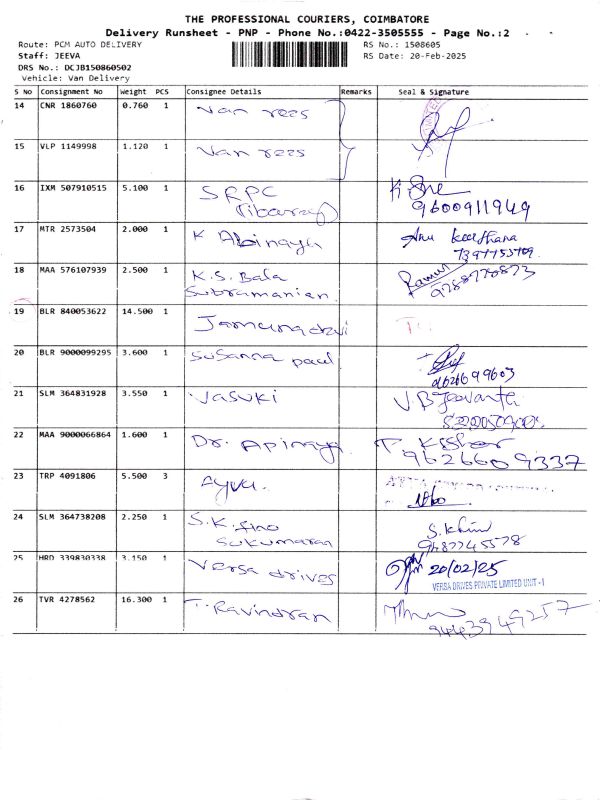 THE PROFESSIONAL COURIERS, COIMBATORE
Delivery Runsheet - PNP - Phone No.:0422-3505555 - Page No.:2
Route: PCM AUTO DELIVERY
RS No.: 1508605
Staff: JEEVA
RS Date: 20-Feb-2025
DRS No.: DCJB150860502
Vehicle: Van Delivery
S No Consignment No Weight PCS Consignee Details Remarks Seal & Signature
14 CNR 1860760 0.760 1 Van rees
15 VLP 1149998 1.120 1 Van rees
16 IXM 507910515 5.100 1 SRPC
9600911949
17 MTR 2573504 2.000 1 K Abinaya Anu Keerthana
18 MAA 576107939 2.500 1 K.S. Bala
Subramanian
9788770873
19 BLR 840053622 14.500 1 Jamunadevi
20 BLR 9000099295 3.600 1 Susanna paul
9626699603
21 SLM 364831928 3.550 1 Vasuki
22 MAA 9000066864 1.600 1 Dr. Apinaya T Kishor
9626609337
23 TRP 4091806 5.500 3
24 SLM 364738208 2.250 1 S.K.
Sukumaran
9487745578
25 HRD 339830338 3.150 1 Versa drives 20/02/25
VERSA DRIVES PRIVATE LIMITED UNIT -1
26 TVR 4278562 16.300 1 T. Ravindran
9443949257